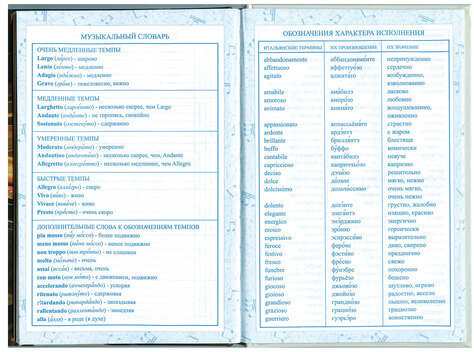 МУЗЫКАЛЬНЫЙ СЛОВАРЬ
ОЧЕНЬ МЕДЛЕННЫЕ ТЕМПЫ
Largo (ларго) - широко
Lento (ленто) - медленно
Adagio (адажио) - медленно
Grave (граве) - тяжеловесно, важно
МЕДЛЕННЫЕ ТЕМПЫ
Larghetto (ларгетто) - несколько скорее, чем Largo
Andante (анданте) - не торопясь, спокойно
Sostenuto (состенуто) - сдержанно
УМЕРЕННЫЕ ТЕМПЫ
Moderato (модерато) - умеренно
Andantino (андантино) - несколько скорее, чем Andante
Allegretto (аллегретто) - несколько медленнее, чем Allegro
БЫСТРЫЕ ТЕМПЫ
Allegro (аллегро) - скоро
Vivo (виво) - живо
Vivace (виваче) - живо
Presto (престо) - очень скоро
ДОПОЛНИТЕЛЬНЫЕ СЛОВА К ОБОЗНАЧЕНИЯМ ТЕМПОВ
piu mosso (пиу моссо) - более подвижно
meno mosso (мено моссо) - менее подвижно
non troppo (нон троппо) - не слишком
molto (мольто) - очень
assai (ассаи) - весьма, очень
con moto (кон мото) - с движением, подвижно
accelerando (аччелерандо) - ускоряя
ritenuto (ритенуто) - сдерживая
ritardando (ритардандо) - запаздывая
rallentando (раллентандо) - замедляя
alla (алла) - в роде (в духе)
ОБОЗНАЧЕНИЯ ХАРАКТЕРА ИСПОЛНЕНИЯ
ИТАЛЬЯНСКИЕ ТЕРМИНЫ ИХ ПРОИЗНОШЕНИЕ ИХ ЗНАЧЕНИЕ
abbandonamente аббандонаменте непринужденно
affettuoso аффеттуозо сердечно
agitato аджитато возбужденно,
взволнованно
amabile амабиле ласково
amoroso аморозо любовно
animato анимато воодушевленно,
оживленно
appassionato аппассьонато страстно
ardente арденте с жаром
brillante бриллянте блестяще
buffo буффо комически
cantabile кантабиле певуче
capriccioso каприччьозо капризно
deciso дечизо решительно
dolce дольче мягко, нежно
dolcissimo дольчиссимо очень мягко,
очень нежно
dolente доленте грустно, жалобно
elegante элеганте изящно, красиво
energico энерджико энергично
eroico эроико героически
espressivo эспрессиво выразительно
feroce фероче дико, свирепо
festivo фестиво празднично
fresco фреско свежо
funebre фунэбре похоронно
furioso фуриозо бешено
giocoso джьокозо шутливо, игриво
gioioso джойозо радостно, весело
grandioso грандиозо пышно, великолепно
grazioso грациозо грациозно
guerriero гуэрьэро воинственно